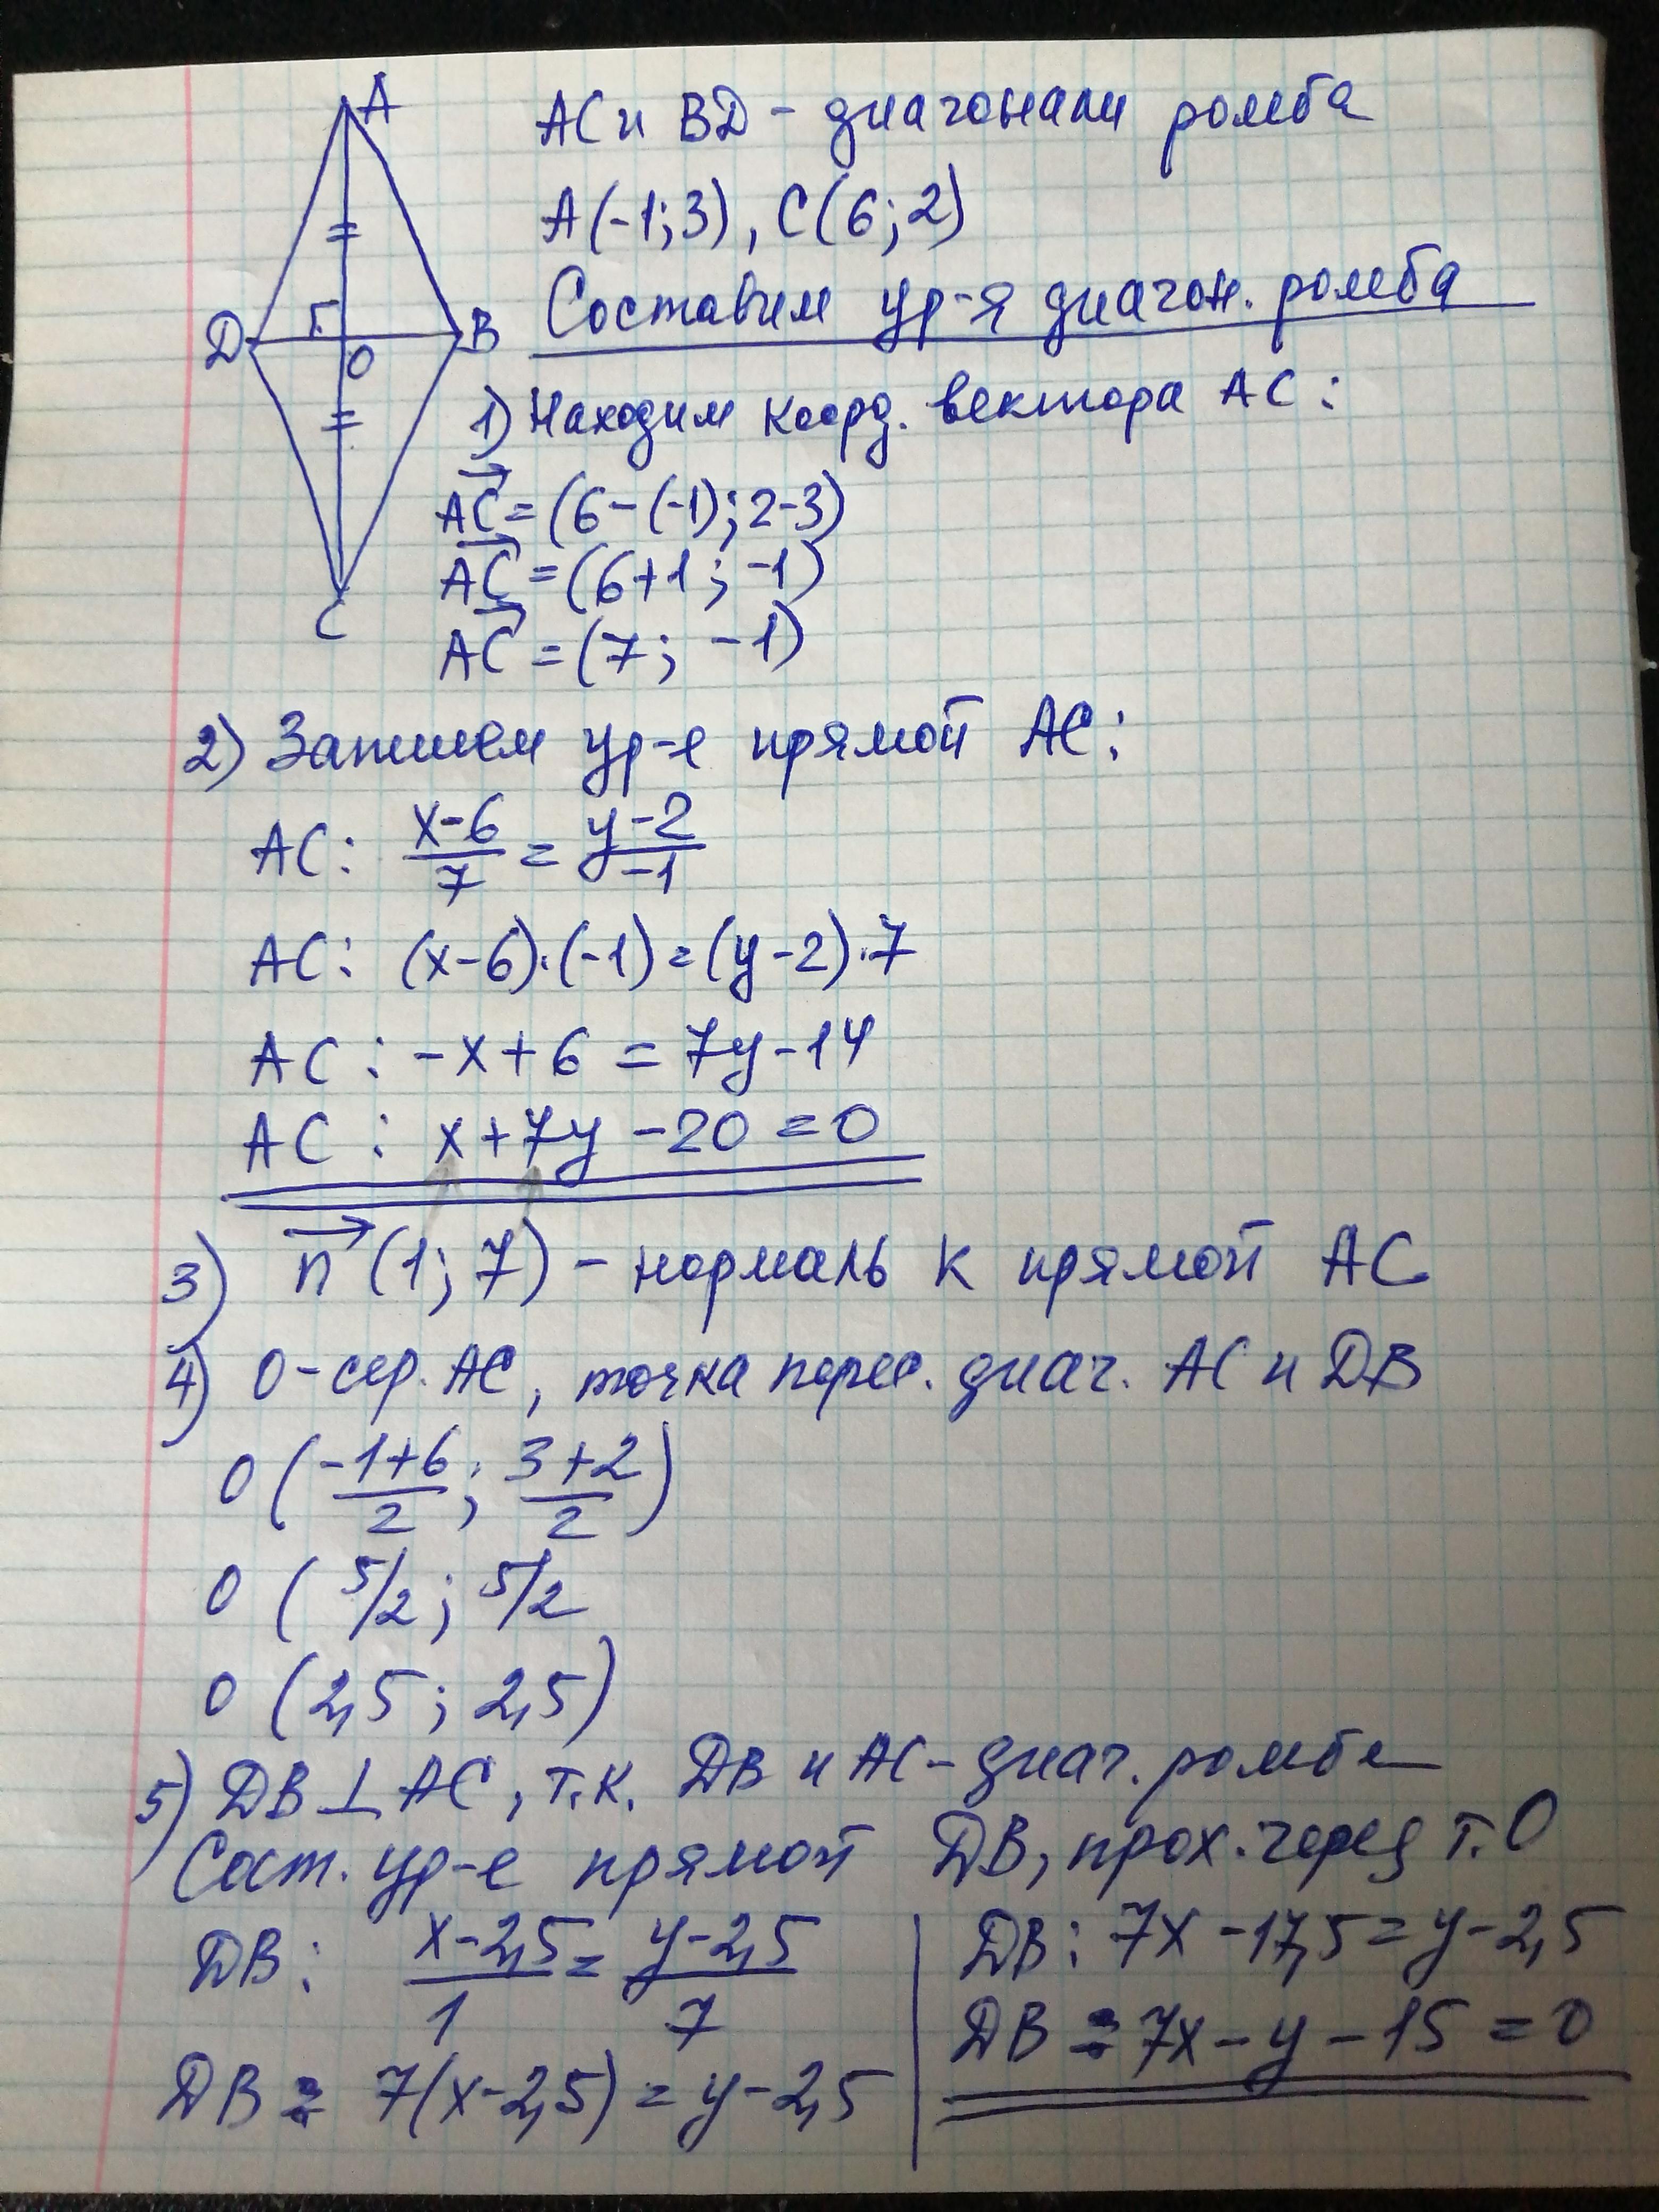 A
AC и BD - диагонали ромба
A(-1;3), C(6;2)
Составим ур-я диагон. ромба
D
O
B
1) Находим коорд. вектора AC:
AC = (6-(-1); 2-3)
AC = (6+1; -1)
C
AC = (7; -1)
2) Запишем ур-е прямой AC:
AC: x-6/7 = y-2/-1
AC: (x-6)·(-1)=(y-2)·7
AC: -x+6 = 7y-14
AC: x+7y-20=0
3) n (1; 7) - нормаль к прямой AC
4) O-сер. AC, точка перес. диаг. AC и DB
O (-1+6/2; 3+2/2)
O ( 5/2; 5/2
O (2,5; 2,5)
5) DB⊥AC, т.к. DB и AC-диаг. ромба
Сост. ур-е прямой DB, прох. через т.O
DB: x-2,5/1 = y-2,5/7
DB: 7(x-2,5)=y-2,5
DB: 7x-17,5=y-2,5
DB: 7x-y-15=0